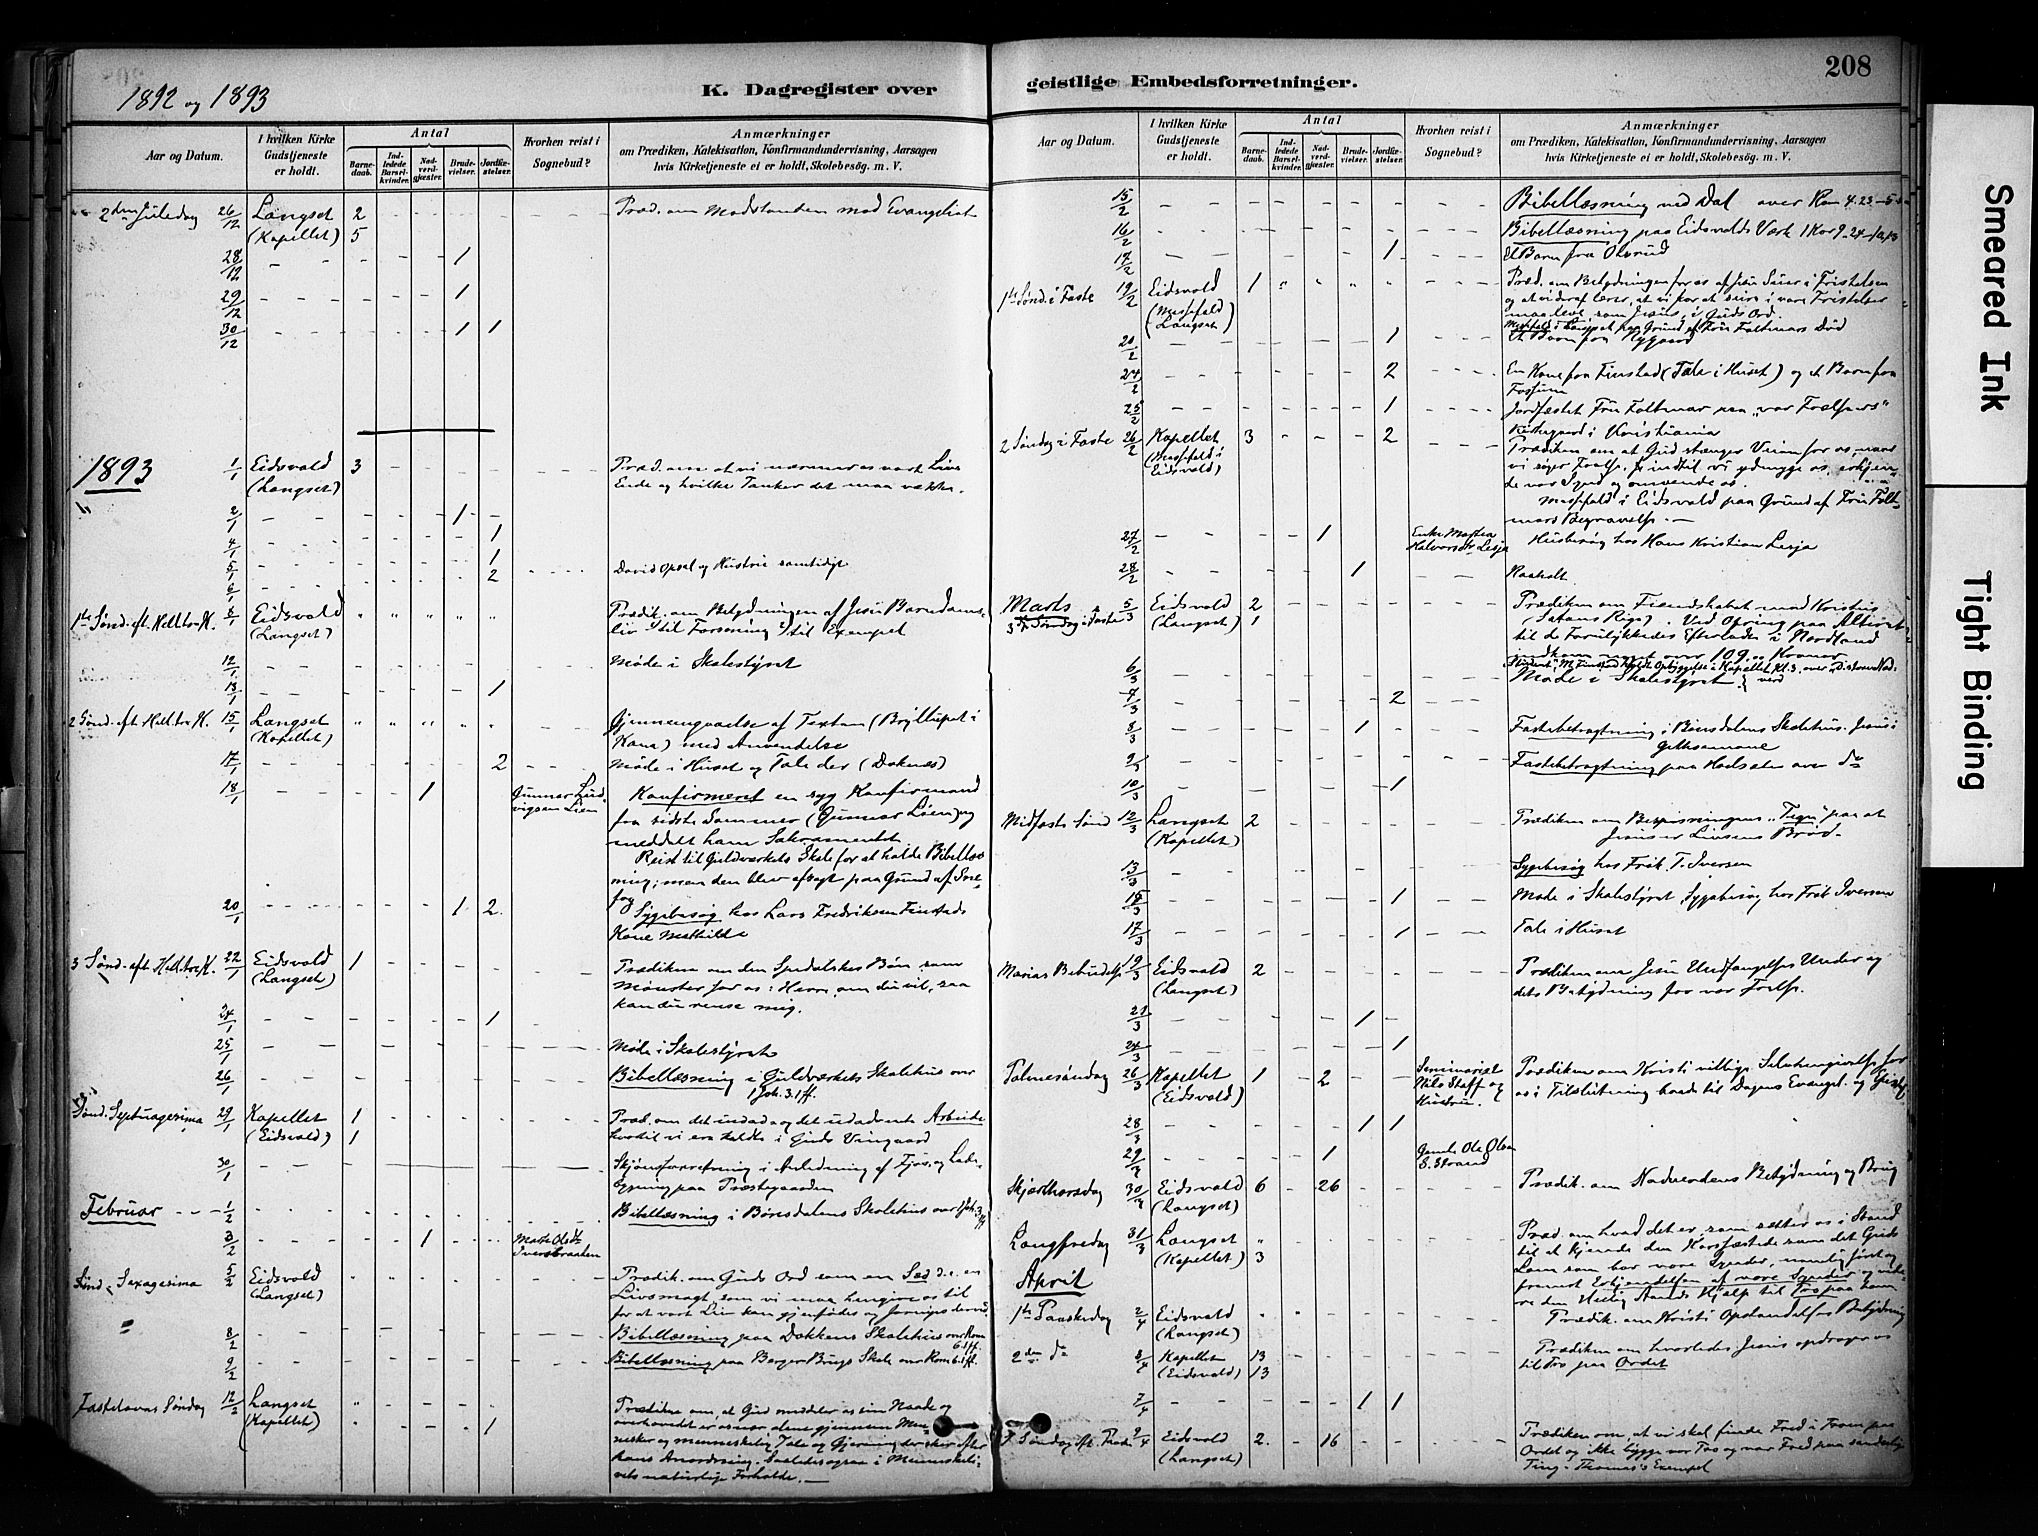 1892 og 1893
K. Dagregister over
geistlige Embedsforretninger.
208
Aar og Datum.
I hvilken Kirke Gudstjeneste er holdt.
Antal
Barnedaab.
Indledede Barselkvinder.
Nadverdgjæster.
Brudevielser.
Jordfæstelser.
Hvorhen reist i Sognebud?
Anmærkninger
om Prædiken, Katekisation, Konfirmandundervisning, Aarsagen
hvis Kirketjeneste ei er holdt, Skolebesøg. m. V.
2den Juledag 26/12 Langset 2 Præd. om Modstanden mod Evangeliet
(Kapellet) 5
28/12 – – – – – 1
29/12 – – – – – 1
30/12 – – – – – 1 1
1893 1/1 Eidsvold 3 Præd. om at vi nærmer os vort Livs
(Langset) Ende og hvilke Tanker det maa vække.
2/1 – – – – 1 –
4/1 – – – – – 1
5/1 – – – – – 1
6/1 – – – – – 2 David Opsal og Hustru samtidigt
1ste Sønd. eft. Hell. tre K. 8/1 Eidsvold Prædik. om Betydningen af Jesu Barndoms-
(Langset) liv 1) til Forsoning 2) til Exempel
12/1 – – – Møde i Skolestyret
13/1 – – – – 1
2 Sønd. eft. Hell. tre K. 15/1 Langset Gjennemgaaelse af Texten (Bryllupet i
(Kapellet) Kana) med Anvendelse
17/1 – – – – 2 Møde i Huset og Tale der (Doknes)
18/1 – – 1 Gunnar Lud- Konfirmeret en syg Konfirmand
vigsen Lien fra sidste Sommer (Gunnar Lien) og
meddelt ham Sakramentet.
Reist til Guldværkets Skole for at holde Bibellæs
ning; men den blev afsagt paa Grund af Sne-
fog
20/1 – – – 1 2. Sygebesøg hos Lars Fredriksen Finstads
Kone Mathilde
3 Sønd. eft. Hell. tre K. 22/1 Eidsvold 1 Prædiken om den Spedalskes Bøn som
(Langset) Mønster for os: Herre, om du vil, saa
kan du rense mig.
24/1 – – – – 1
25/1 – – – Møde i Skolestyret
26/1 – – – Bibellæsning i Guldværkets Skolehus over
1 Joh. 3. 1 ff.
Sønd. Septuagesima 29/1 Kapellet 1 Præd. om det indad og det udadvendte Arbeide
(Eidsvold) 1 hvortil vi ere kaldte i Guds Vingaard
30/1 – – – Skjønsforretning i Anledning af Fjøs og Lade-
bygning paa Præstegaarden
Februar – – – 1/2 Bibellæsning i Bønsdalens Skolehus over 1 Joh. 3 ff
3/2 – – 1 Marte Olsdtr
Iversbraaten
Sønd. Sexagesima 5/2 Eidsvold Prædik. om Guds Ord som en Sæd d.e. en
(Langset) Livsmagt, som vi maa hengive os til
for at vort Liv kan gjenfødes og fornyes derved.
8/2 – – – Bibellæsning paa Dokkens Skolehus over Rom
6. 1 ff.
9/2 – – – Bibellæsning paa Berger Brugs Skole over Rom 6. 1 ff.
Fastelavns Søndag 12/2 Langset Prædiken om, at Gud meddeler os sin Naade og
(Kapellet) 1 overhovedet er os nær alene gjennem Men-
nesker og menneskelig Tale og Gjerning der sker efter
hans Anordning. Saaledes ogsaa i Menneskeli-
vets naturlige Forholde. –
15/2 – – – Bibellæsning ved Dal over Rom 4. 23 – 5
16/2 – – – Bibellæsning paa Eidsvolds Værk 1 Kor 9. 24 – 10,13
17/2 – – – 1 Et Barn fra Olsrud
1ste Sønd. i Faste 19/2 Eidsvold 1 Præd. om Betydningen for os af Jesu Seier i Fristelsen
(Messefald og at vi deraf lærer, at vi for at seire i vore Fristelser
Langset) maa leve, som Jesus, i Guds Ord.
Messefald i Langset paa Grund af Fru Foltmars Død
20/2 – – – 1 Et Barn fra Nygaard
24/2 – – – 2 En Kone fra Finstad (Tale i Huset) og et Barn fra
Fossum
25/2 – – – 1 Jordfæstet Fru Foltmar paa „vor Frelsers"
Kirkegaard i Kristiania
2 Søndag i Faste 26/2 Kapellet 3 – – 2 Prædiken om at Gud stænger Veien for os, naar
(Messefald i vi søger Frelse, indtil vi ydmyge os, erkjen-
Eidsvold) de vor Synd og omvende os.
Messefald i Eidsvold paa Grund af Fru Folt-
mars Begravelse. –
27/2 – – 1 Enke Mathea Husbesøg hos Hans Kristian Lesja
Halvorsdtr Lesja
28/2 – – 1 Raaholt.
Marts 5/3 Eidsvold 2 Prædiken om Fiendskabet mod Kristus
3die Søndag i Faste (Langset) 1 (Satans Rige). Ved Ofring paa Alteret
til de Forulykkedes Efterladte i Nordland
indkom noget over 109.00 Kroner
6/3 Møde i Skolestyret
7/3 – – – 2
8/3 – – – 1 Fastebetragtning i Bønsdalens Skolehus. Jesus i
Gethsemane
9/3 Fastebetragtning paa Hodsæter over do
10/3 – – – 1
Midfaste Sønd 12/3 Langset 2 Prædiken om Bespisningens „Tegn" paa at
(Kapellet) Jesus er Livsens Brød.
13/3 – – – Sygebesøg hos Frøk T. Iversen
15/3 – – – 1 Møde i Skolestyret, Sygebesøg hos Frøk Iversen
17/3 – – – 1 Tale i Huset
Marias Bebudelse 19/3 Eidsvold 2 Prædiken om Jesu Undfangelses Under og
(Langset) dets Betydning for vor Frelse.
21/3 – – – 1
24/3 – – – 1
Palmesøndag 26/3 Kapellet 1 – 2 Seminarist Prædiken om Kristi villige Selvhengivelse for
(Eidsvold) Nils Staff og os i Tilslutning baade til Dagens Evangel. og Epistel
Hustru.
28/3 – – – 1 1
29/3 – – 1 Gamle Ole Olsen
S. Strand
Skjærthorsdag 30/3 Eidsvold 6 – 26 Prædik. om Nadverdens Betydning og Brug
(Langset)
Langfredag 31/3 Langset Præd. om hvad det er som sætter os i Stand
(Kapellet) 3 til at kjende den Korsfæstede som det Guds
April Lam som bar vore Synder, nemlig først og
fremst Erkjendelsen af vore Synder og
den Hellig Aands Hjælp til Tro paa ham
1ste Paaskedag 2/4 Eidsvold Prædik. om Kristi Opstandelses Betydning
(Langset)
2den do 3/4 Kapellet 13 Prædiken om hvorledes Jesus opdrager os
(Eidsvold) 13 til Tro paa Ordet
7/4 – – – 1 1
1 Søndag eft. Paaske 9/4 Eidsvold 2. – 16 Prædiken om, at vi skal finde Fred i Troen paa
(Langset) Ordet og ikke bygge vor Tro og vor Fred paa sandselige
Ting. Thomas's Exempel
Smeared Ink
Tight Binding